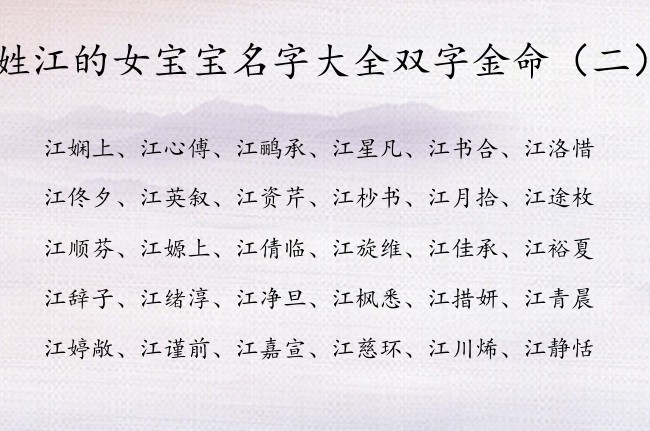 姓江的女宝宝名字大全双字金命（二）
江娴上、江心傅、江鹂承、江星凡、江书合、江洛惜
江佟夕、江英叙、江资芹、江杪书、江月拾、江途枚
江顺芬、江嫄上、江倩临、江旋维、江佳承、江裕夏
江辞子、江绪淳、江净旦、江枫悉、江措妍、江青晨
江婷敞、江谨前、江嘉宣、江慈环、江川烯、江静恬